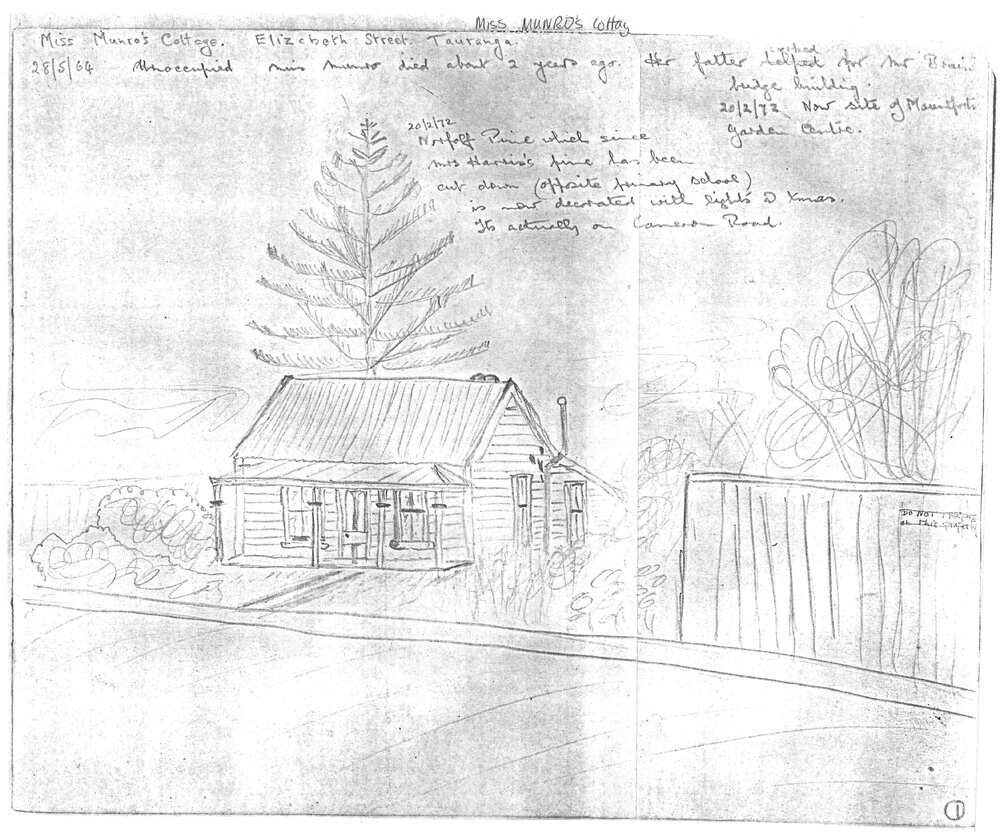 Miss MUNRO's Cottag
Miss Munro's Cottage. Elizabeth Street. Tauranga.
28/5/64 Unoccupied Miss Munro died about 2 years ago. Her father helped worked for Mr Brain
bridge building.
20/2/72 Now site of Mountforts
Garden Centre.
20/2/72
Norfolk Pine which since
Mrs Harris's pine has been
cut down (opposite primary school)
is now decorated with lights @ Xmas.
Its actually on Cameron Road.
DO NOT
on this
1